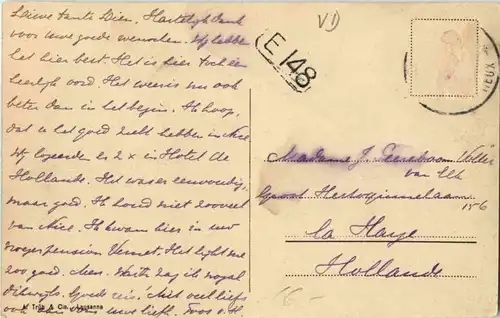 Lieve tante Lien. Hartelijk dank
voor uwe goede wenschen. Wij hebben
het hier best. Het is hier toch een
heerlijk oord. Het weer is nu ook
beter dan in het begin. Ik hoop,
dat u het goed zult hebben in Nice
Wij logeerden er 2 x in Hotel de
Hollande. Het was er eenvoudig,
maar goed. Ik houd niet zooveel
van Nice. Ik kwam hier in uw
vroeger pension Vernet. Het lijkt me
zoo goed. Mies. Marte zag ik nogal
dikwijls. Goede reis! Met veel liefs
ook van
VD
E 148
IEUX
Madame J.
van Eck
Groot Hertoginnelaan
156
La Haye
Hollande
16-
Trüb & Cie. Lausanne